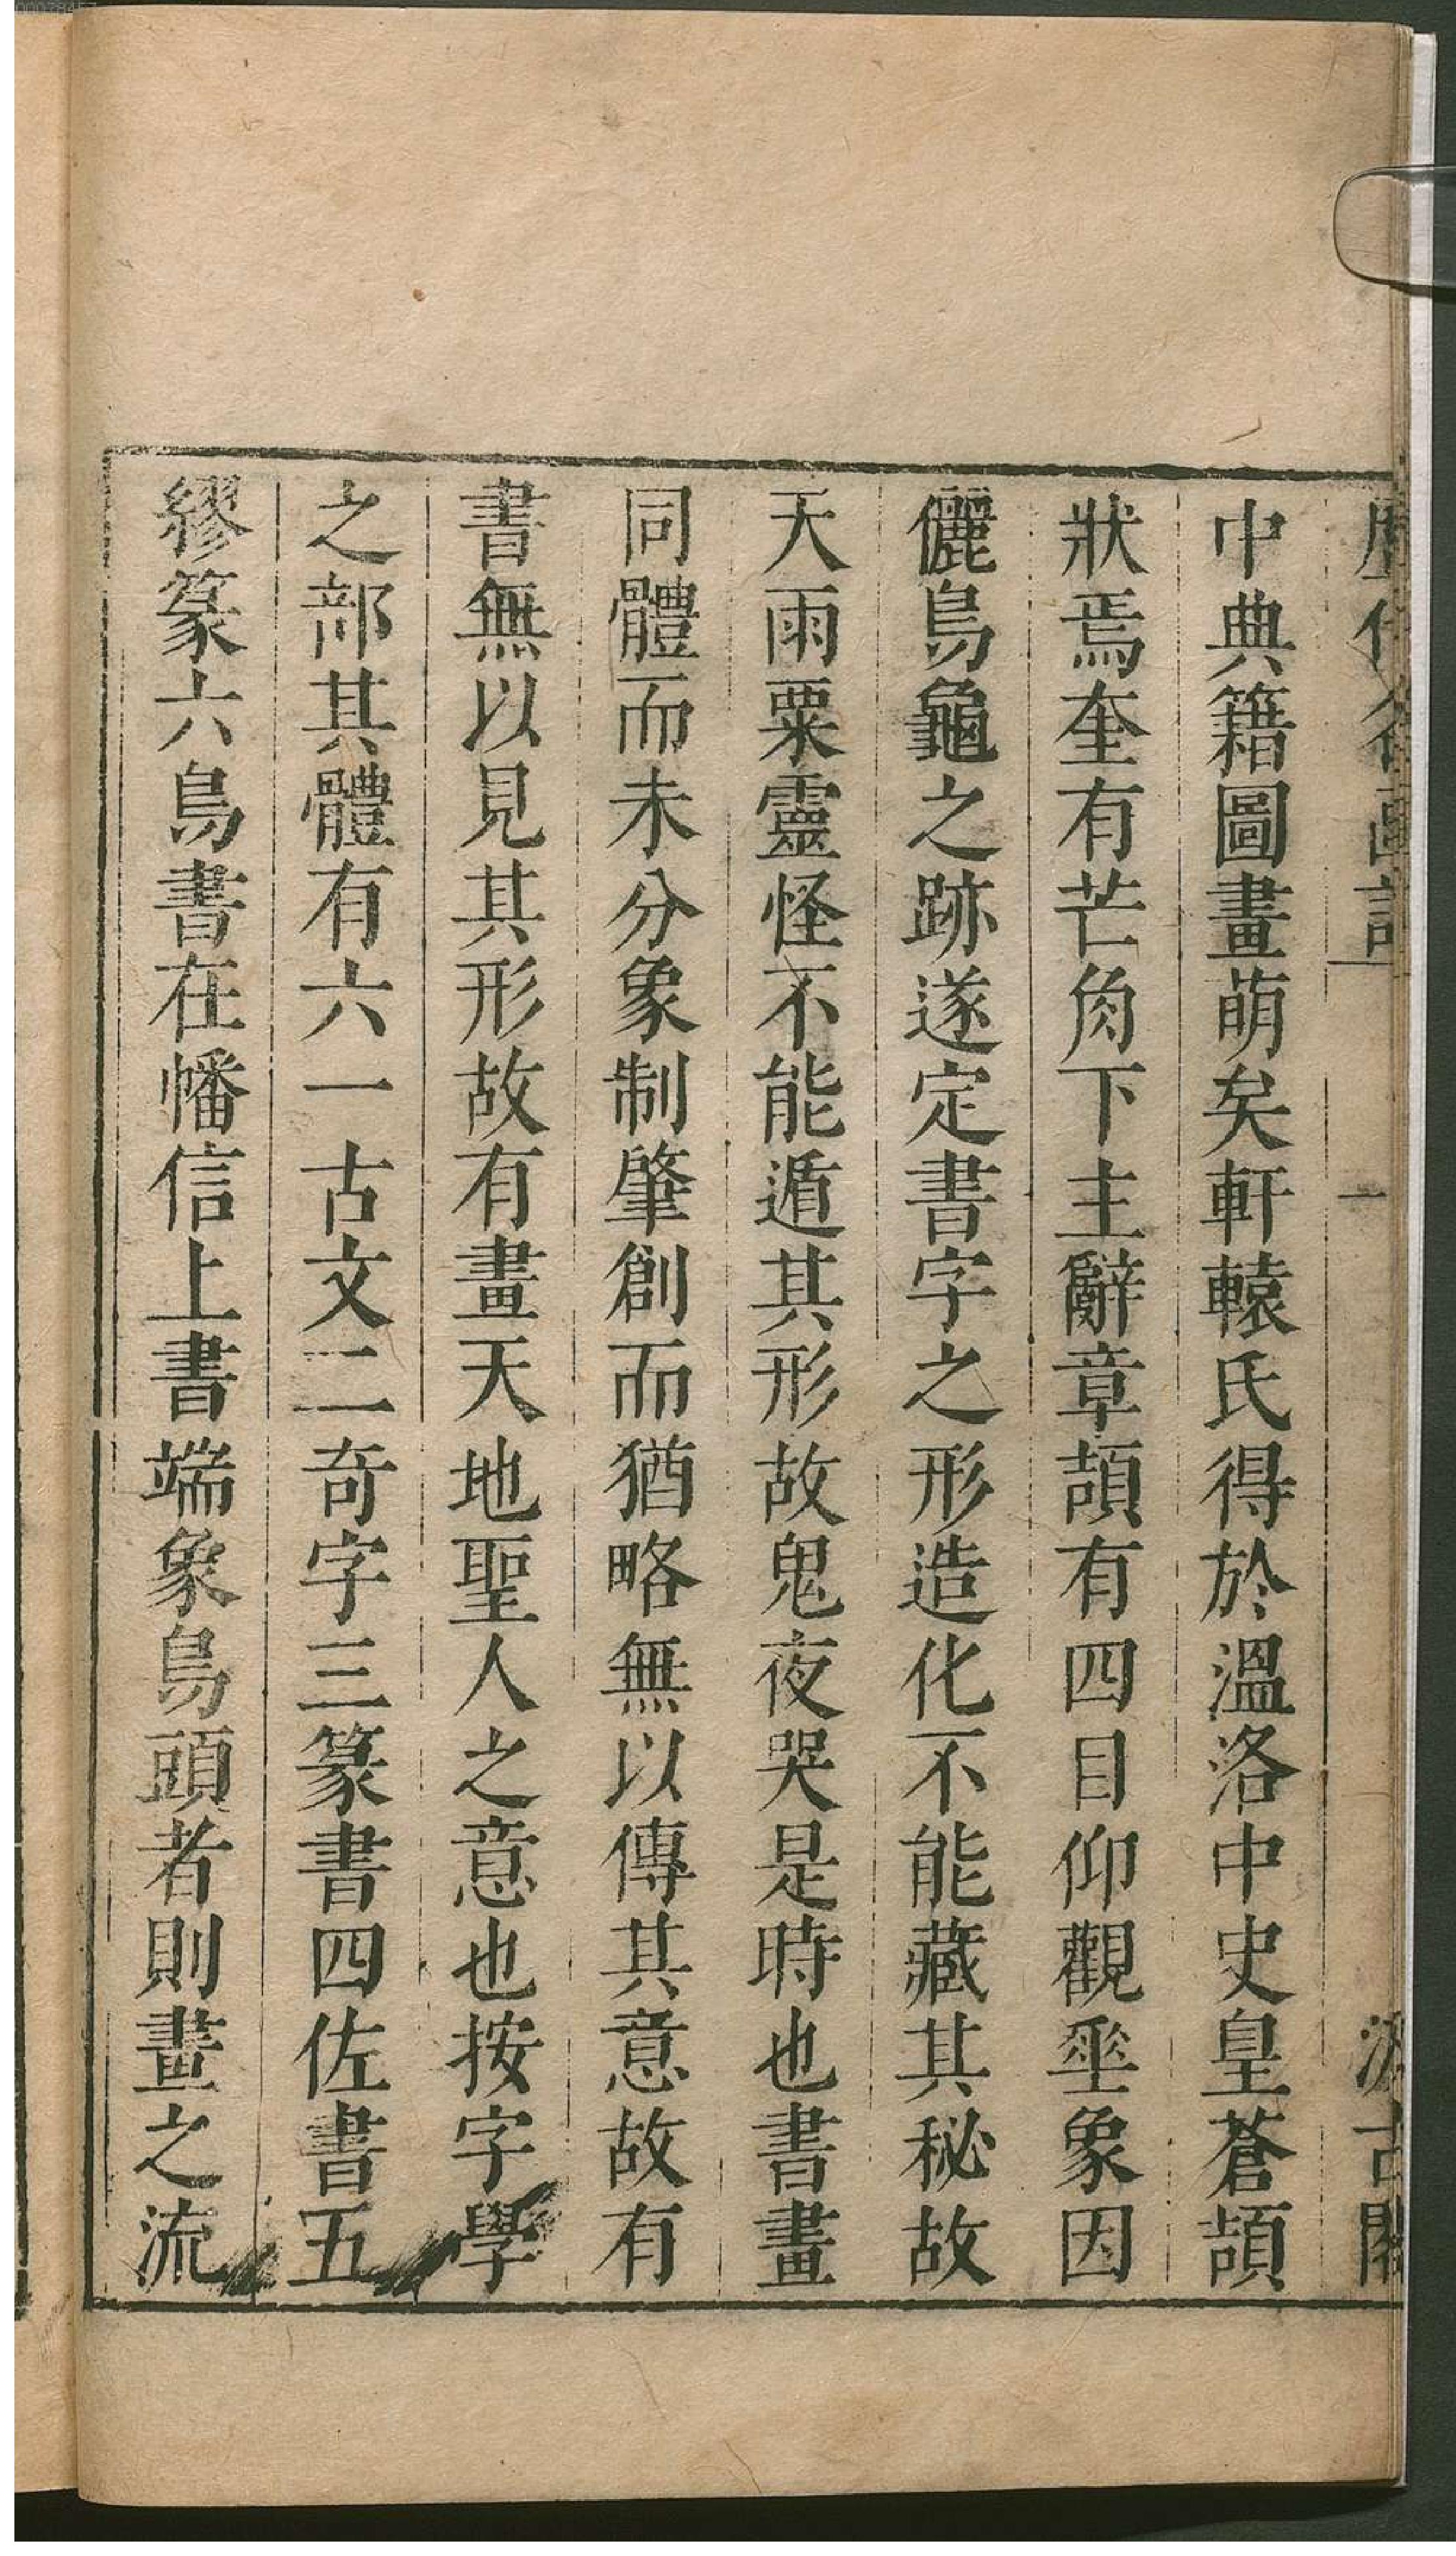 中典籍圖畫萌矣軒轅氏得於溫洛中史皇蒼頡
狀焉奎有芒角下主辭章頡有四目仰觀垂象因
儷鳥龜之跡遂定書字之形造化不能藏其秘故
天雨粟靈怪不能遁其形故鬼夜哭是時也書畫
同體而未分象制肇創而猶略無以傳其意故有
書無以見其形故有畫天地聖人之意也按字學
之部其體有六一古文二奇字三篆書四佐書五
繆篆六鳥書在幡信上書端象鳥頭者則畫之流